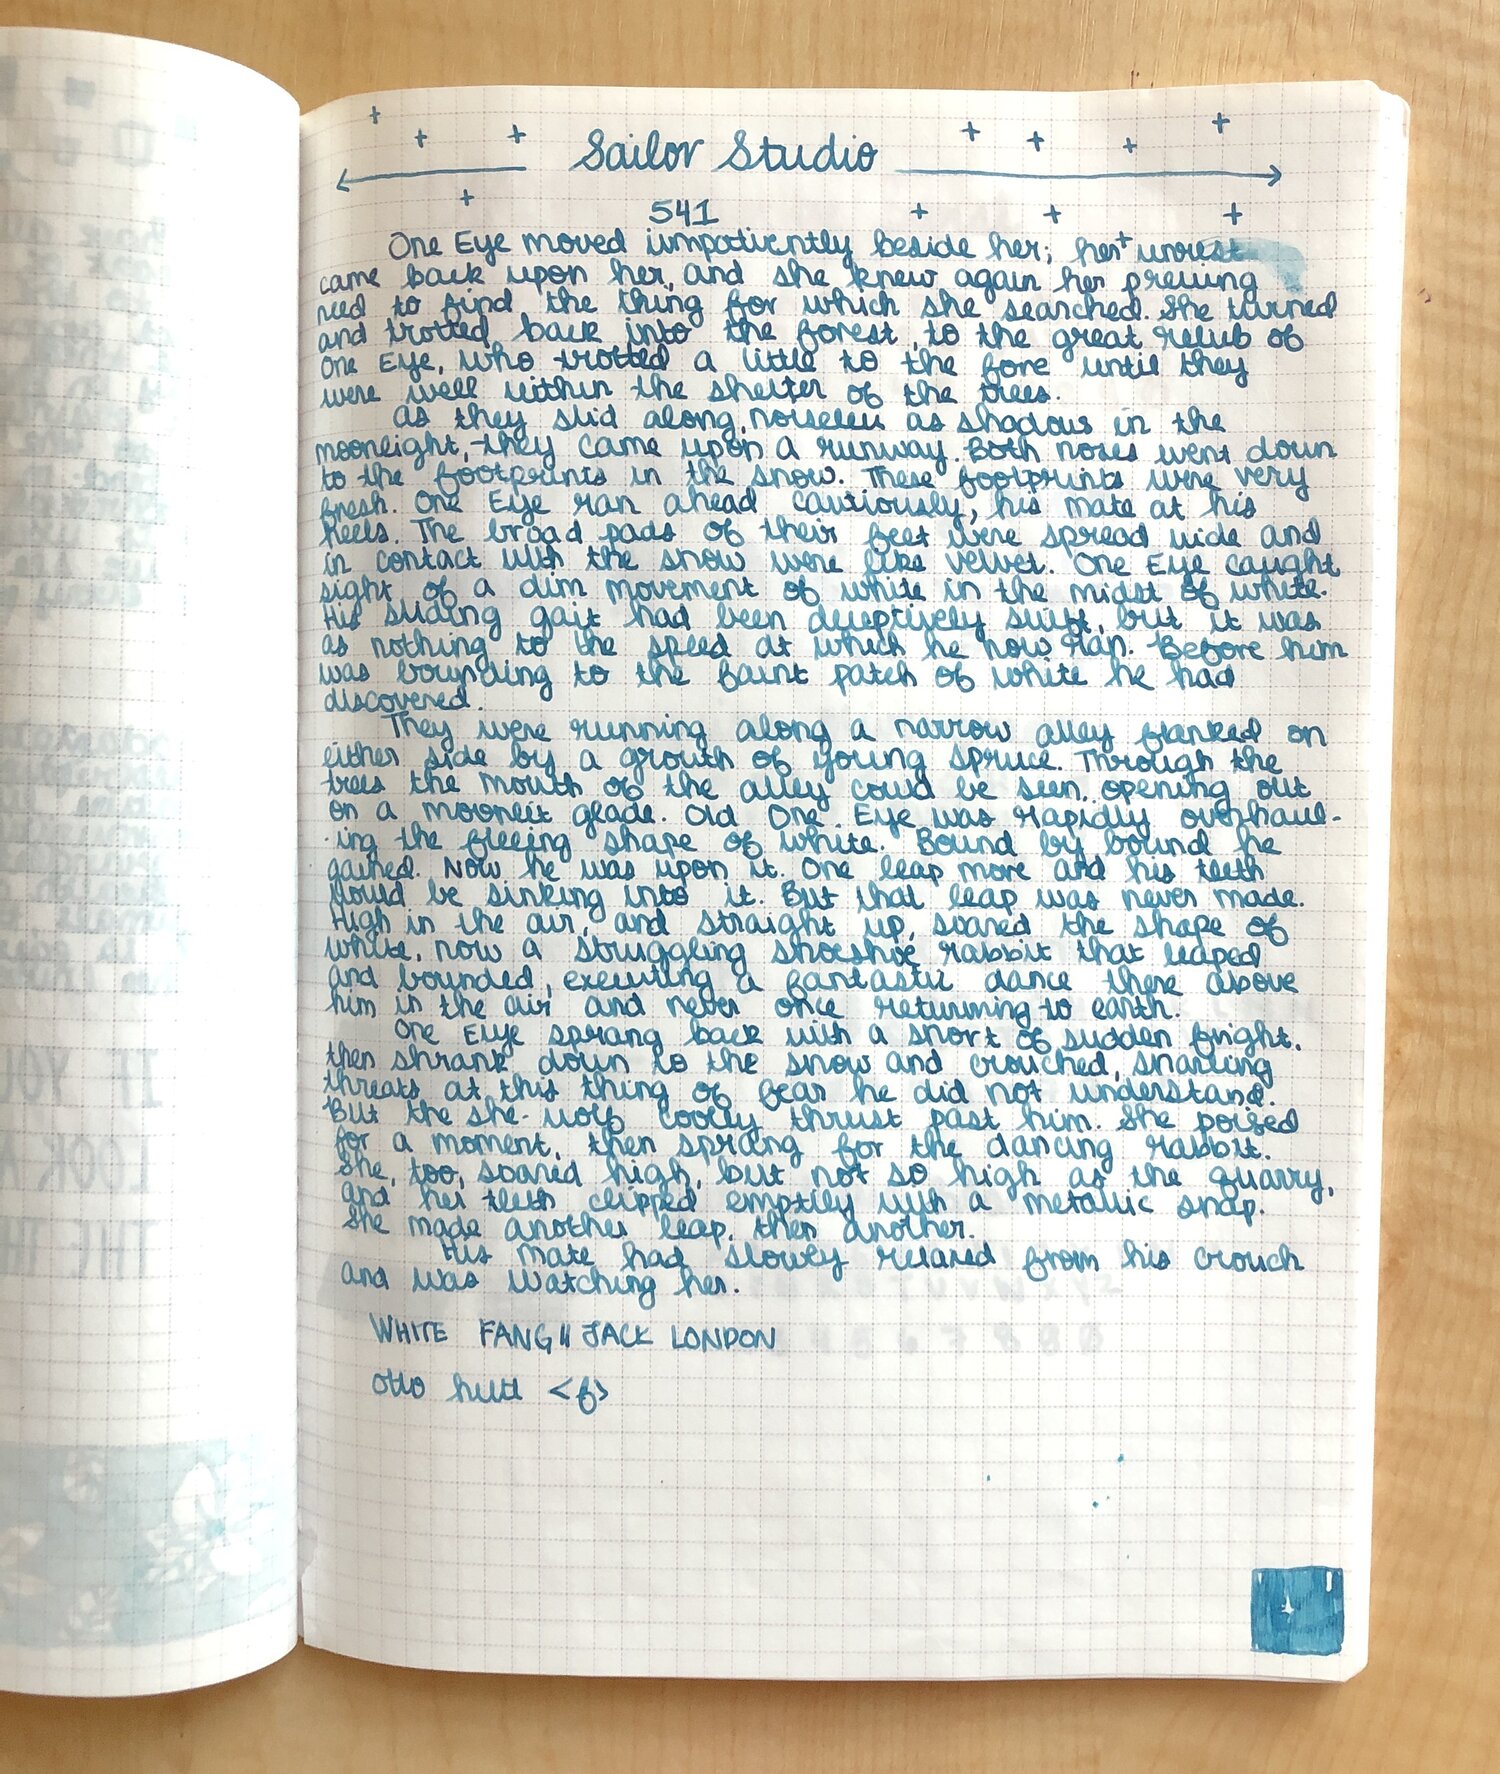 Sailor Studio
541
One Eye moved impatiently beside her; her unrest
came back upon her, and she knew again her pressing
need to find the thing for which she searched. She turned
and trotted back into the forest, to the great relief of
One Eye, who trotted a little to the fore until they
were well within the shelter of the trees.
As they slid along, noiseless as shadows in the
moonlight, they came upon a runway. Both noses went down
to the footprints in the snow. These footprints were very
fresh. One Eye ran ahead cautiously, his mate at his
heels. The broad pads of their feet were spread wide and
in contact with the snow were like velvet. One Eye caught
sight of a dim movement of white in the midst of white.
His sliding gait had been deceptively swift, but it was
as nothing to the speed at which he now ran. Before him
was bounding to the faint patch of white he had
discovered.
They were running along a narrow alley flanked on
either side by a growth of young spruce. Through the
trees the mouth of the alley could be seen, opening out
on a moonlit glade. Old One Eye was rapidly overhaul-
ing the fleeing shape of white. Bound by bound he
gained. Now he was upon it. One leap more and his teeth
would be sinking into it. But that leap was never made.
High in the air, and straight up, soared the shape of
white, now a struggling shoeshoe rabbit that leaped
and bounded, executing a fantastic dance there above
him in the air and never once returning to earth.
One Eye sprang back with a snort of sudden fright,
then shrank down to the snow and crouched, snarling
threats at this thing of fear he did not understand.
But the she-wolf coolly thrust past him. She poised
for a moment, then sprang for the dancing rabbit.
She, too, soared high, but not so high as the quarry,
and her teeth clipped emptily with a metallic snap.
She made another leap, then another.
His mate had slowly relaxed from his crouch
and was watching her.
WHITE FANG || JACK LONDON
otto hutt <f>